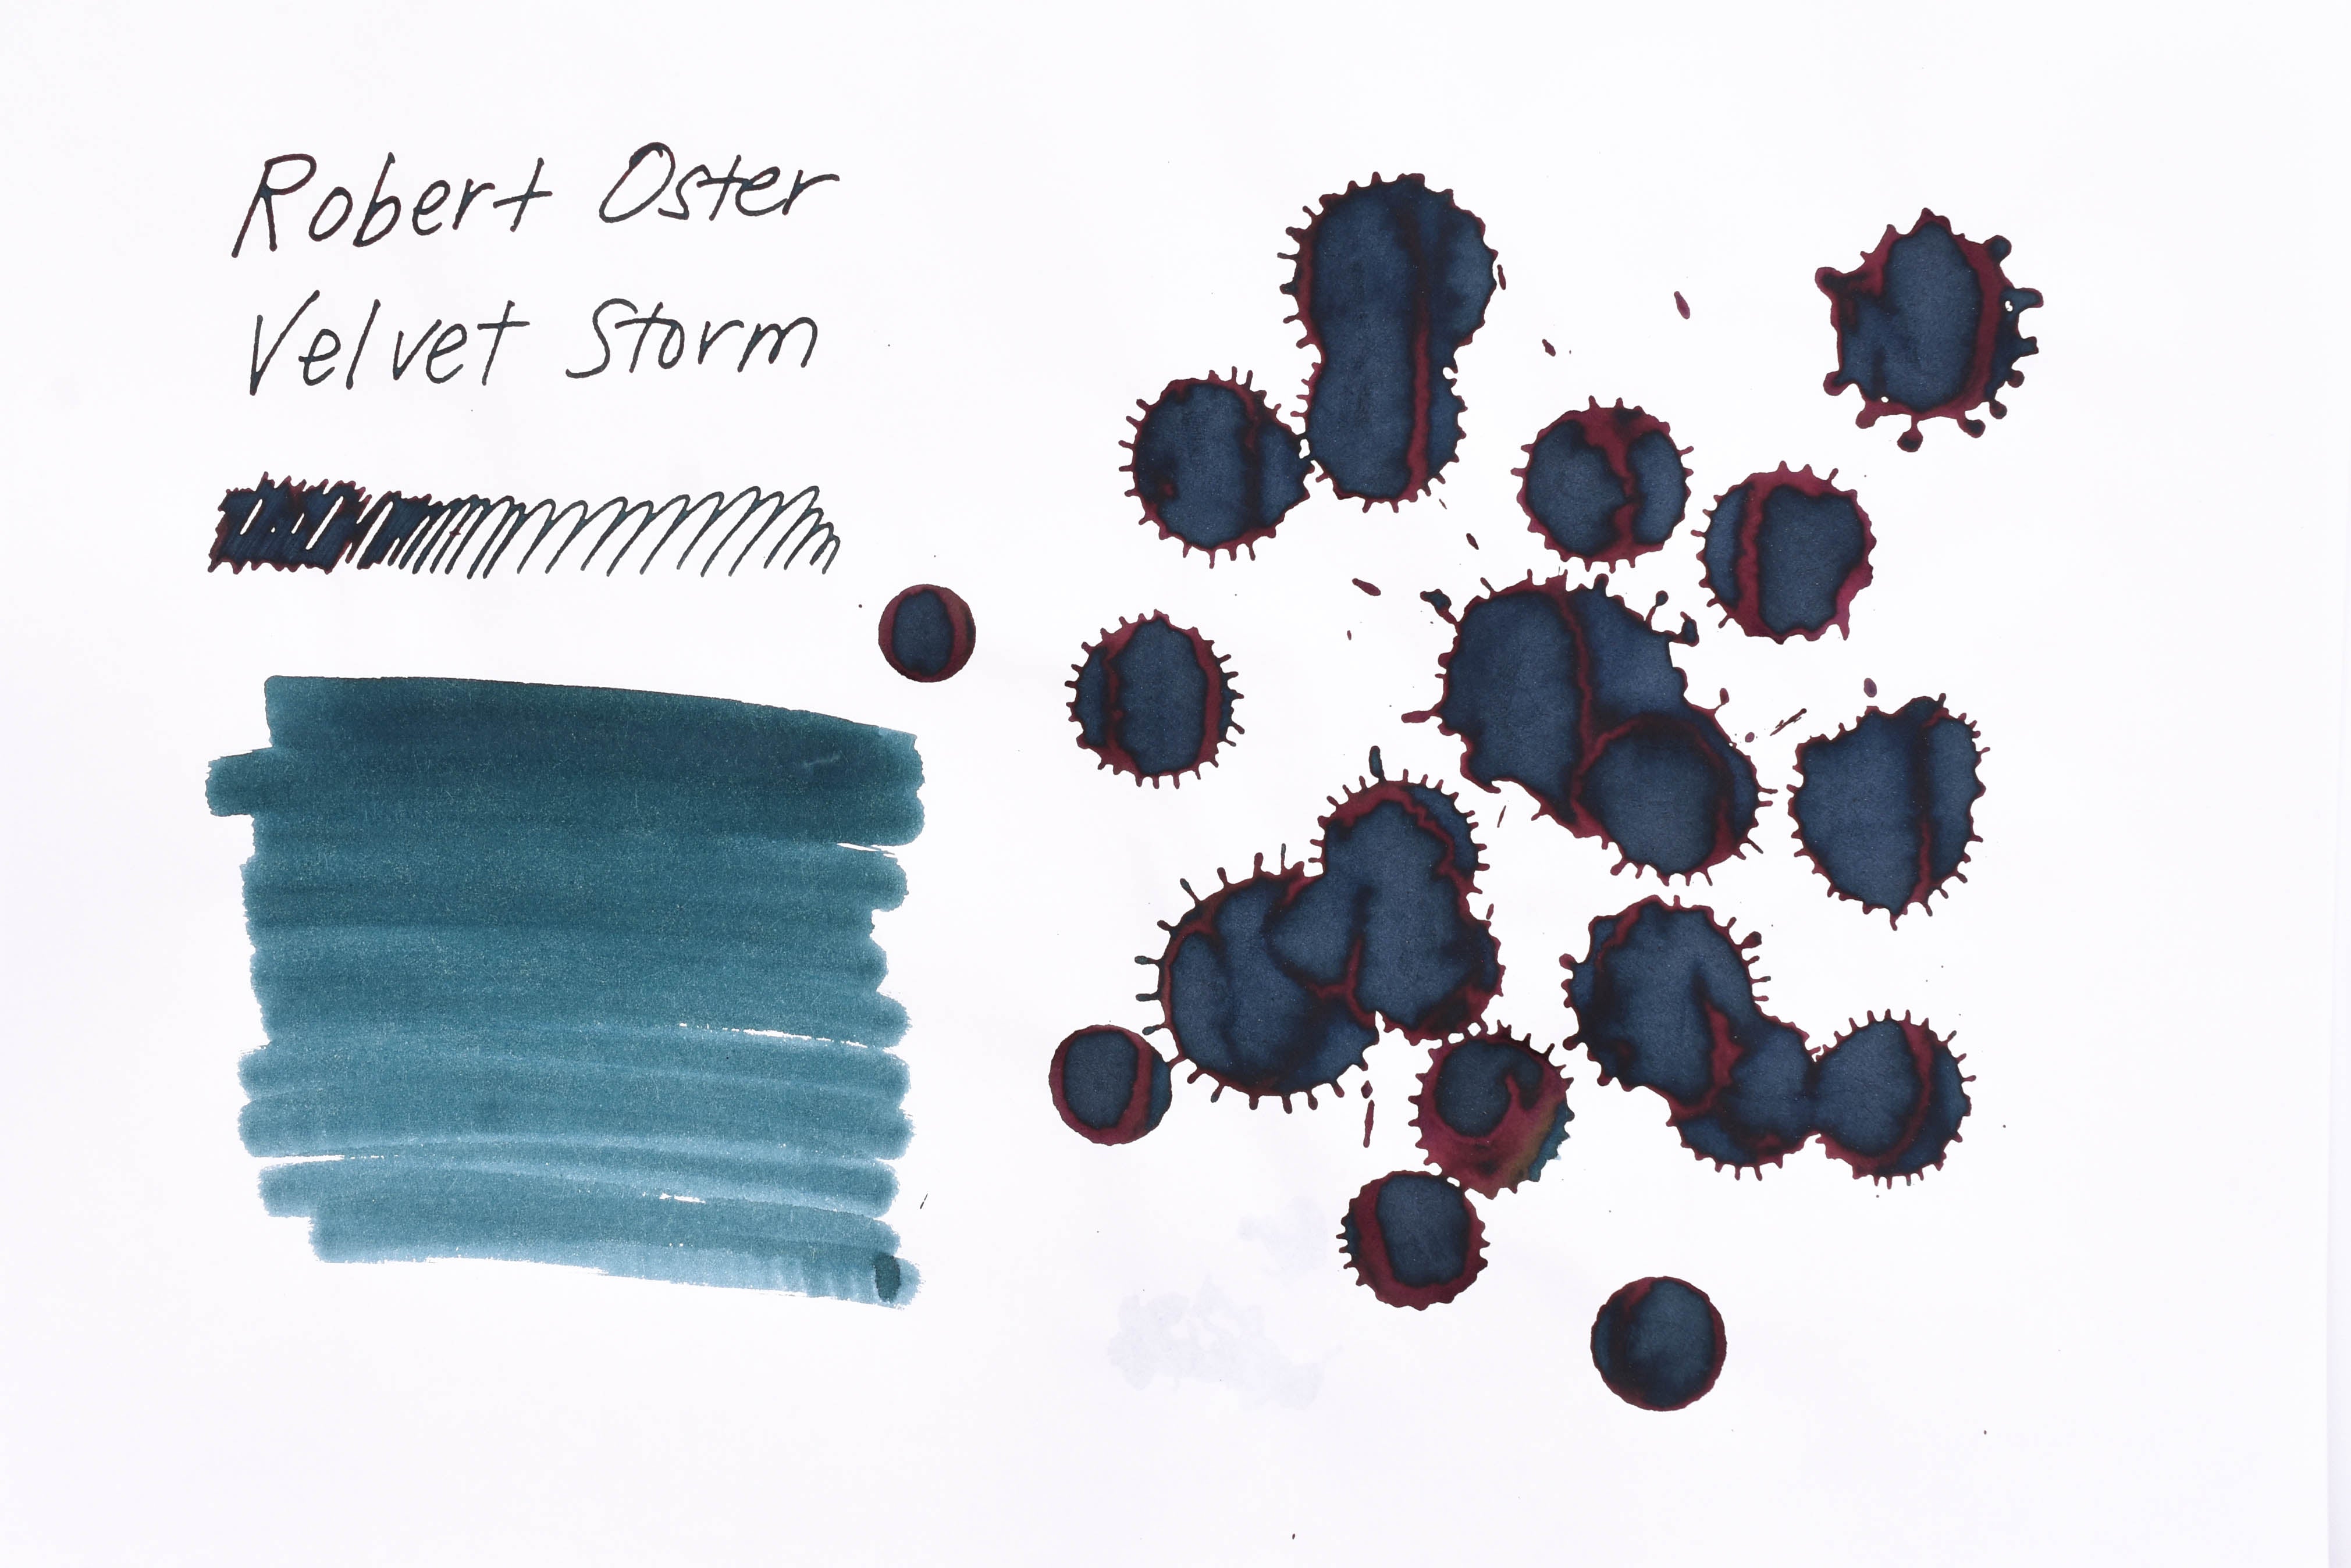 Robert Oster
Velvet Storm